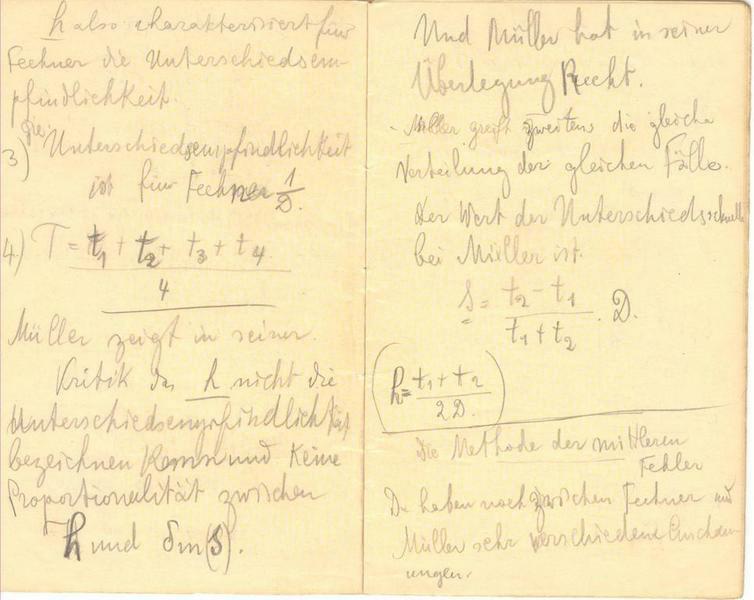 h also charakterisiert für
Fechner die Unterschiedsem-
pfindlichkeit.
3) Die Unterschiedsempfindlichkeit
ist für Fechner 1/D.
4.) T = t1 + t2 + t3 + t4
4
Müller zeigt in seiner
Kritik das h nicht die
Unterschiedsempfindlichkeit
bezeichnen kann und keine
Proportionalität zwischen
h und (S).
Und Müller hat in seiner
Überlegung Recht.
Müller greift zweitens die gleiche
Verteilung der gleichen Fälle.
Der Wert der Unterschiedsschwelle
bei Müller ist.
S = t2 - t1 / t1 + t2 . D.
(h = t1 + t2 / 2D.)
Die Methode der mittleren
Fehler
Da haben noch zwischen Fechner und
Müller sehr verschiedene Anschau-
ungen.